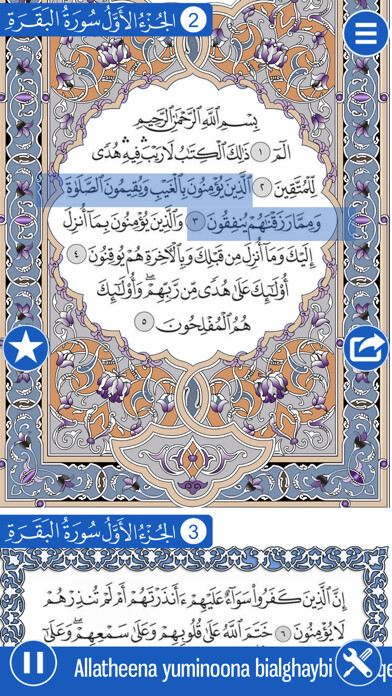 الجُزْءُ الأَوَّلُ سُورَةُ البَقَرَةِ 2
بِسْمِ ٱللَّهِ ٱلرَّحْمَٰنِ ٱلرَّحِيمِ
الٓمٓ ١ ذَٰلِكَ ٱلْكِتَٰبُ لَا رَيْبَ ۛ فِيهِ ۛ هُدًى
لِّلْمُتَّقِينَ ٢ ٱلَّذِينَ يُؤْمِنُونَ بِٱلْغَيْبِ وَيُقِيمُونَ ٱلصَّلَوٰةَ
وَمِمَّا رَزَقْنَٰهُمْ يُنفِقُونَ ٣ وَٱلَّذِينَ يُؤْمِنُونَ بِمَآ أُنزِلَ
إِلَيْكَ وَمَآ أُنزِلَ مِن قَبْلِكَ وَبِٱلْءَاخِرَةِ هُمْ يُوقِنُونَ ٤
أُو۟لَٰٓئِكَ عَلَىٰ هُدًى مِّن رَّبِّهِمْ ۖ وَأُو۟لَٰٓئِكَ
هُمُ ٱلْمُفْلِحُونَ ٥
الجُزْءُ الأَوَّلُ سُورَةُ البَقَرَةِ 3
إِنَّ ٱلَّذِينَ كَفَرُوا۟ سَوَآءٌ عَلَيْهِمْ ءَأَنذَرْتَهُمْ أَمْ لَمْ تُنذِرْهُمْ
لَا يُؤْمِنُونَ ٦ خَتَمَ ٱللَّهُ عَلَىٰ قُلُوبِهِمْ وَعَلَىٰ سَمْعِهِمْ ۖ وَعَلَىٰٓ
Allatheena yuminoona bialghaybi